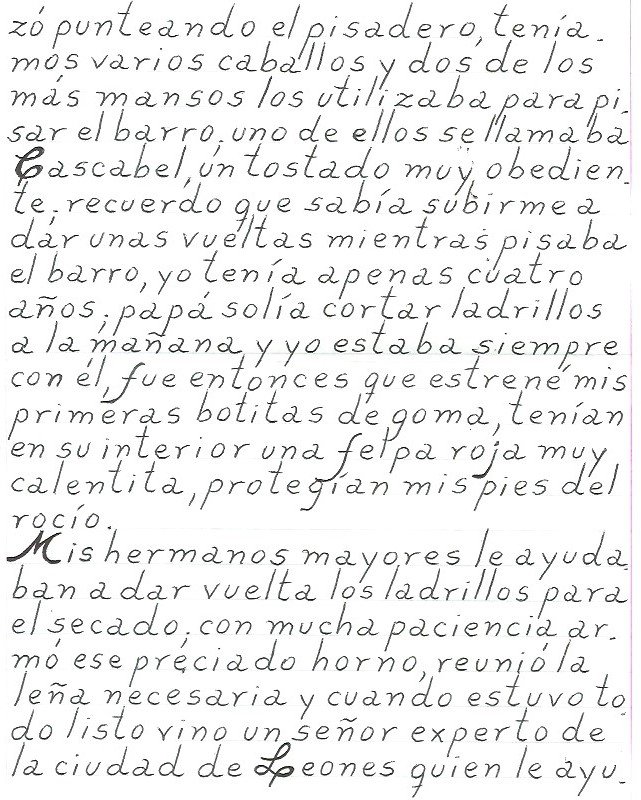 zó punteando el pisadero, tenía-
mos varios caballos y dos de los
más mansos los utilizaba para pi-
sar el barro; uno de ellos se llamaba
Cascabel, un tostado muy obedien-
te; recuerdo que sabía subirme a
dar unas vueltas mientras pisaba
el barro, yo tenía apenas cuatro
años; papá solía cortar ladrillos
a la mañana y yo estaba siempre
con él, fue entonces que estrené mis
primeras botitas de goma, tenían
en su interior una felpa roja muy
calentita, protegían mis pies del
rocío.
Mis hermanos mayores le ayuda-
ban a dar vuelta los ladrillos para
el secado; con mucha paciencia ar-
mó ese preciado horno, reunió la
leña necesaria y cuando estuvo to-
do listo vino un señor experto de
la ciudad de Leones quien le ayu-